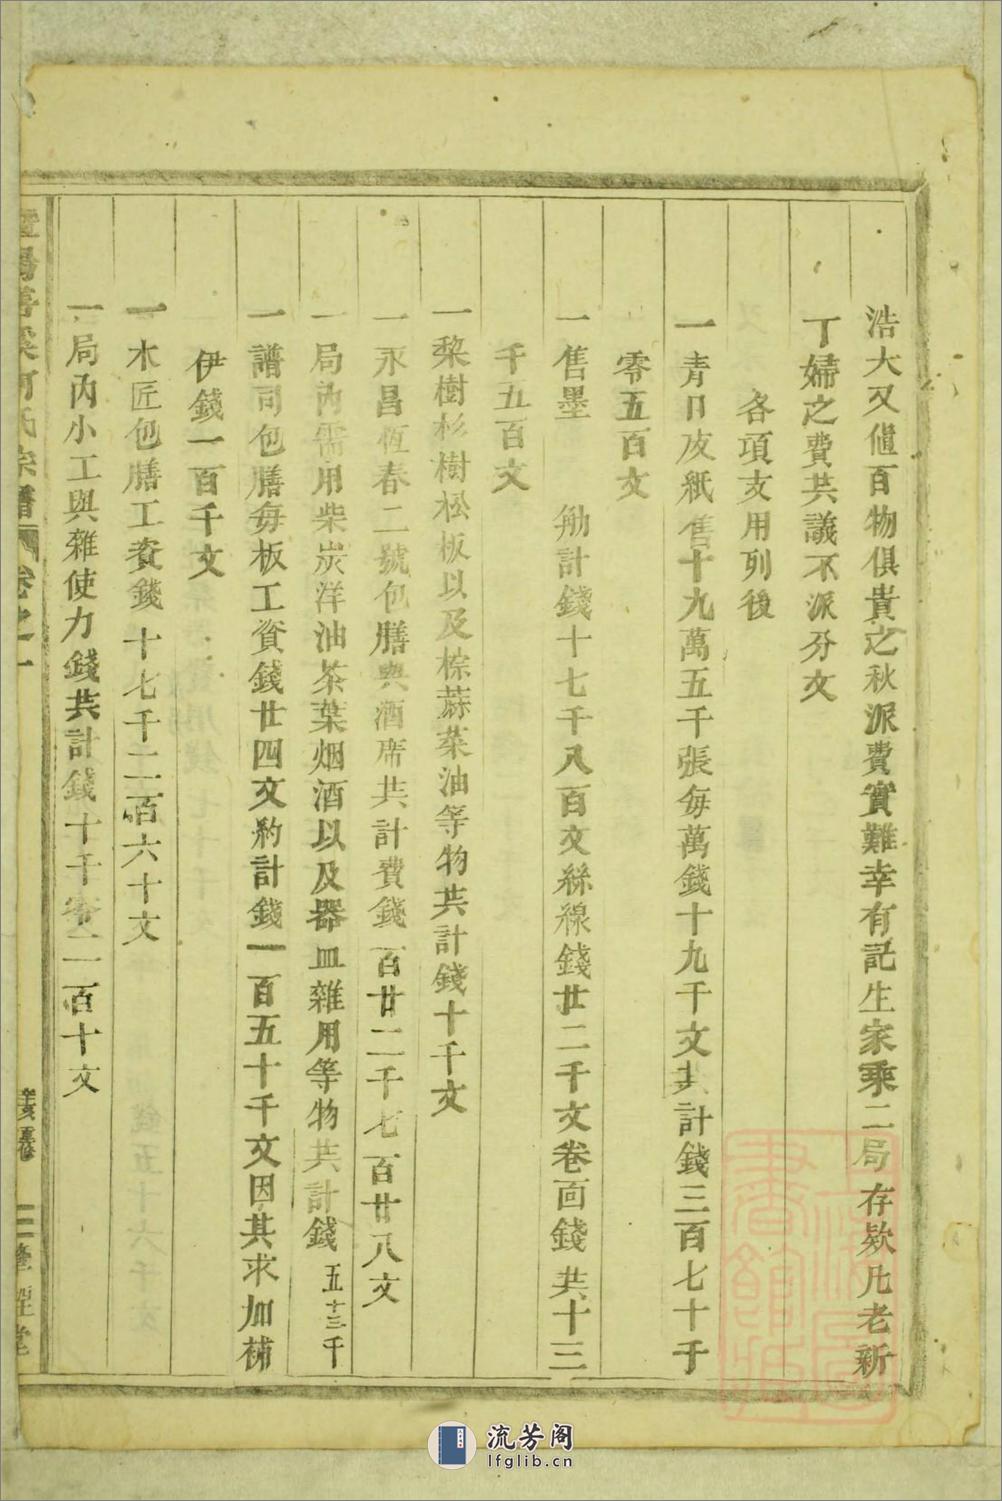 浩大又値百物俱貴之秋派費實難幸有記生家乘二局存欵凡老新
丁婦之費共議不派分文
各項支用列後
一青日皮紙售十九萬五千張每萬錢十九千文共計錢三百七十千
零五百文
一售墨 觔計錢十七千八百文絲線錢廿二千文卷面錢共十三
千五百文
一棃樹杉樹松板以及棕蔴菜油等物共計錢十千文
一永昌恆春二號包膳與酒席共計費錢一百廿二千七百廿八文
一局內需用柴炭洋油茶葉烟酒以及器皿雜用等物共計錢五十三千
一譜司包膳每板工資錢廿四文約計錢一百五十千文因其求加補
伊錢一百千文
一木匠包膳工資錢十七千二百六十文
一局內小工與雜使力錢共計錢十千零二百十文
暨陽 溪何氏宗譜 卷之一
辛亥重修 三 堂
上海圖書館藏
流芳阁
lfglib.cn